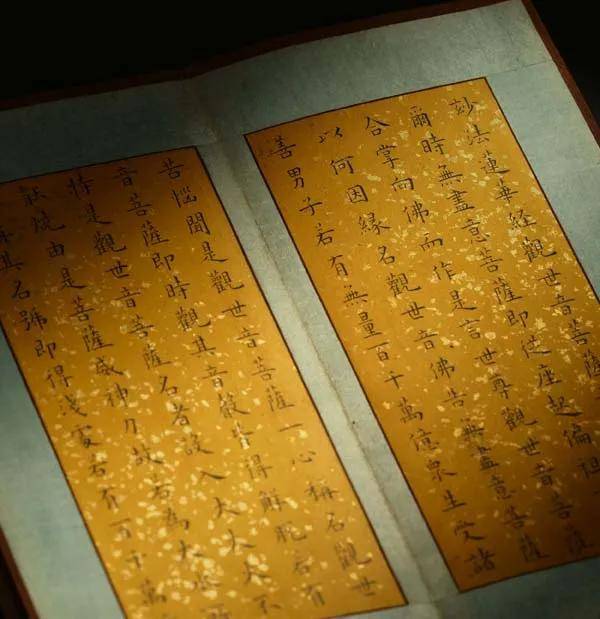 妙法蓮華經觀世音菩薩
爾時無盡意菩薩即從座起偏袒
合掌向佛而作是言世尊觀世音菩薩
以何因緣名觀世音佛告無盡意菩薩
善男子若有無量百千萬億眾生受諸
苦惱聞是觀世音菩薩一心稱名觀世
音菩薩即時觀其音聲皆得解脫若有
持是觀世音菩薩名者設入大火火不
能燒由是菩薩威神力故若為大水所
其名號即得淺處若有百千萬